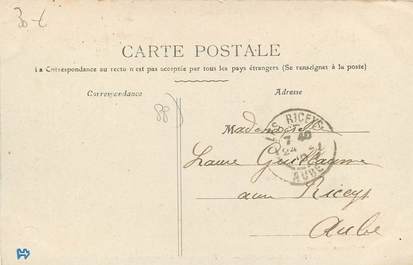 30-t
CARTE POSTALE
La Correspondance au recto n'est pas acceptée par tous les pays étrangers (Se renseigner à la poste)
Correspondance
Adresse
88
LES RICEYS
AUBE
Mademoiselle
Laure Guillaume
aux Riceys
Aube